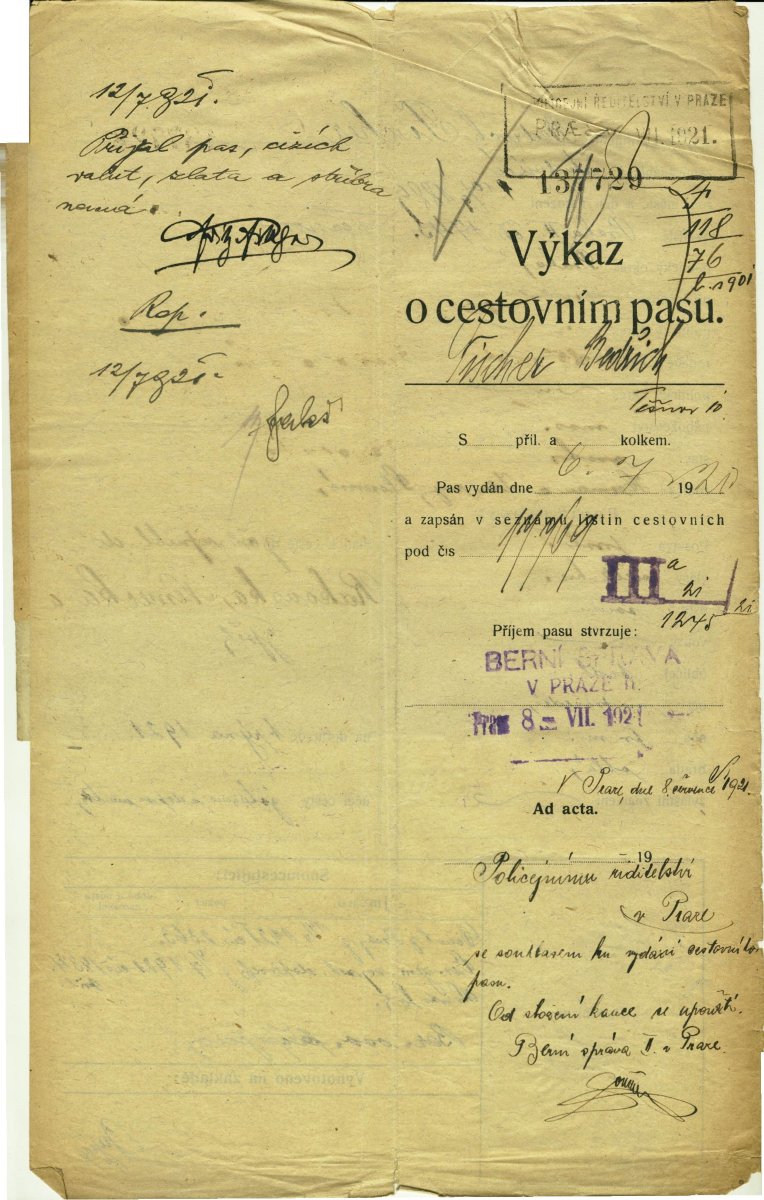 12/7 921.
Přijal pas, cizích
valut, zlata a stříbra
nemá.
Rap.
12/7 921.
POLICEJNÍ ŘEDITELSTVÍ V PRAZE
VII. 1921.
137729
118
76
b. 1901
Výkaz
o cestovním pasu.
Fischer Bedřich
Těšnov 10
S příl. a kolkem.
Pas vydán dne 6. 7. 1921
a zapsán v seznamu listin cestovních
pod čís
III a
21
1245
Příjem pasu stvrzuje:
BERNÍ SPRÁVA
V PRAZE II.
8 - VII. 1921
V Praze, dne 8. července 1921.
Ad acta.
19
Policejnímu ředitelství
v Praze
se souhlasem ku vydání cestovního
pasu.
Od složení kauce se upouští.
Berní správa II. v Praze.